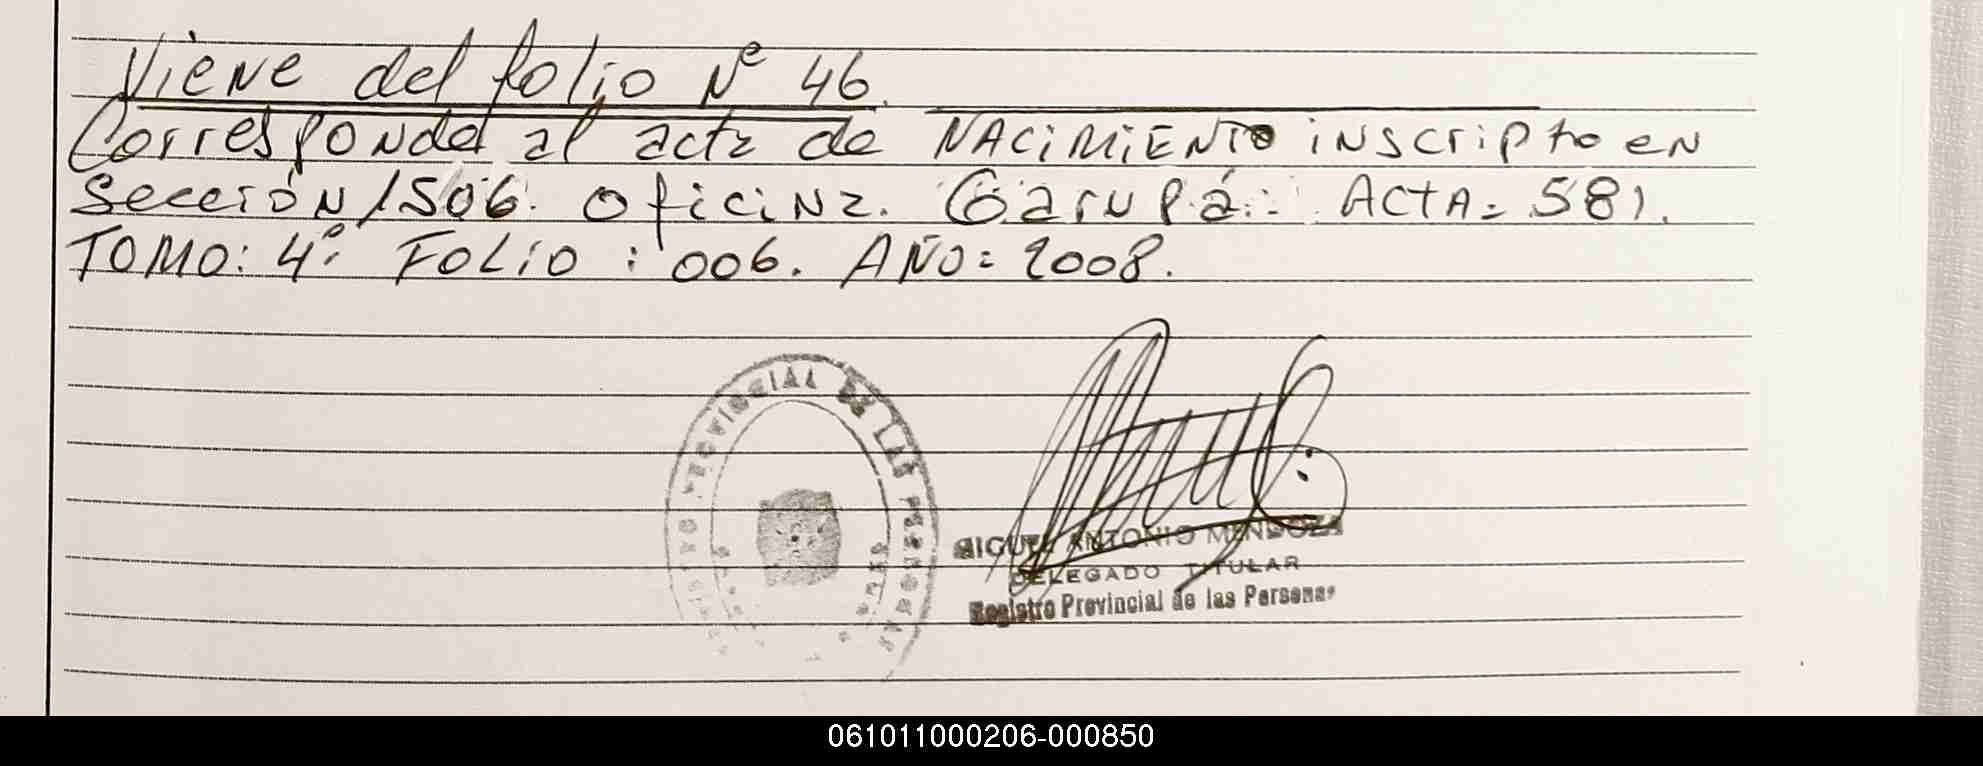 Viene del folio Nº 46.
Corresponde al acta de NACIMIENTO inscripto en
Sección 1506. Oficina. Garupá. ACTA= 581.
TOMO: 4º. FOLIO: 006. AÑO= 2008.
PROVINCIAL DE LAS PERSONAS
MIGUEL ANTONIO MENDOZA
DELEGADO TITULAR
Registro Provincial de las Personas
061011000206-000850